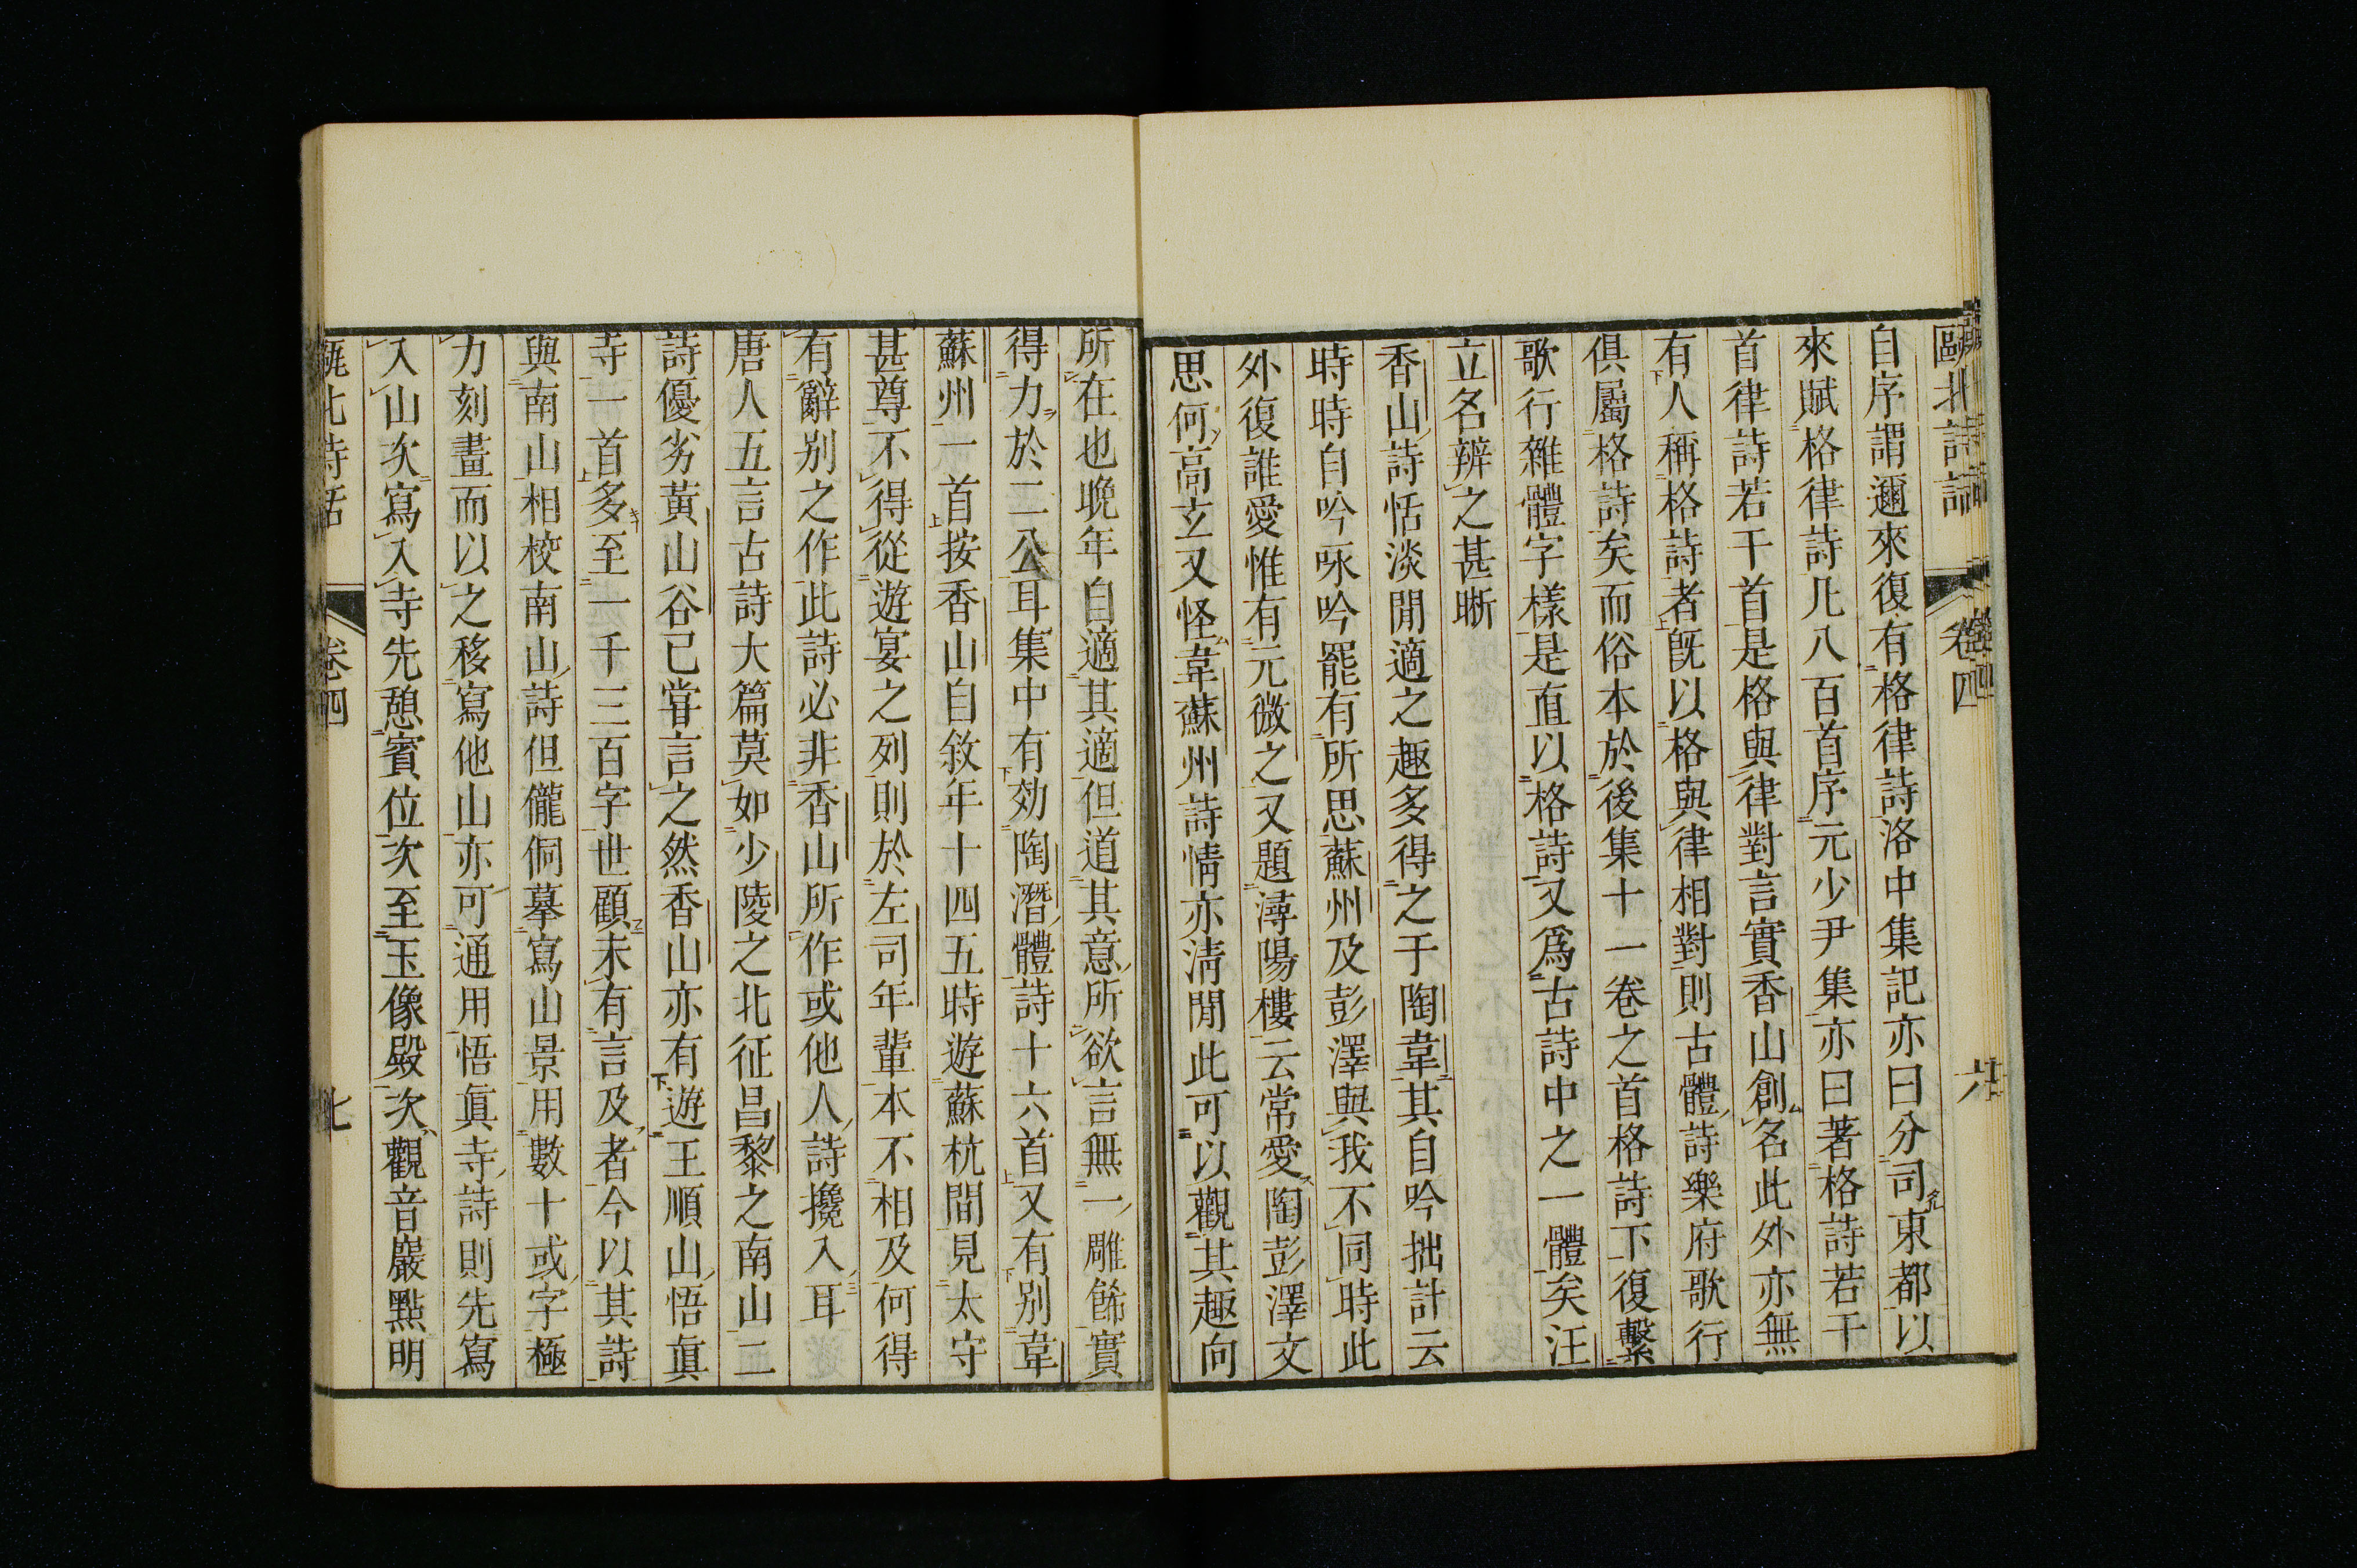 甌北詩話 卷四 六
自序謂邇來復有格律詩洛中集記亦曰分司東都以
來賦格律詩凡八百首序元少尹集亦曰著格詩若干
首律詩若干首是格與律對言實香山創名此外亦無
有人稱格詩者旣以格與律相對則古體詩樂府歌行
俱屬格詩矣而俗本於後集十一卷之首格詩下復繫
歌行雜體字樣是直以格詩又爲古詩中之一體矣汪
立名辨之甚晰
香山詩恬淡閒適之趣多得之于陶韋其自吟拙計云
時時自吟咏吟罷有所思蘇州及彭澤與我不同時此
外復誰愛惟有元微之又題潯陽樓云常愛陶彭澤文
思何高玄又怪韋蘇州詩情亦淸閒此可以觀其趣向
所在也晚年自適其適但道其意所欲言無一雕飾實
得力於二公耳集中有効陶潛體詩十六首又有别韋
蘇州一首按香山自敘年十四五時遊蘇杭間見太守
甚尊不得從遊宴之列則於左司年輩本不相及何得
有辭别之作此詩必非香山所作或他人詩攙入耳
唐人五言古詩大篇莫如少陵之北征昌黎之南山二
詩優劣黄山谷已嘗言之然香山亦有遊王順山悟眞
寺一首多至一千三百字世顧未有言及者今以其詩
與南山相校南山詩但儱侗摹寫山景用數十或字極
力刻畫而以之移寫他山亦可通用悟眞寺詩則先寫
入山次寫入寺先憩賓位次至玉像殿次觀音巖點明
甌北詩話 卷四 七